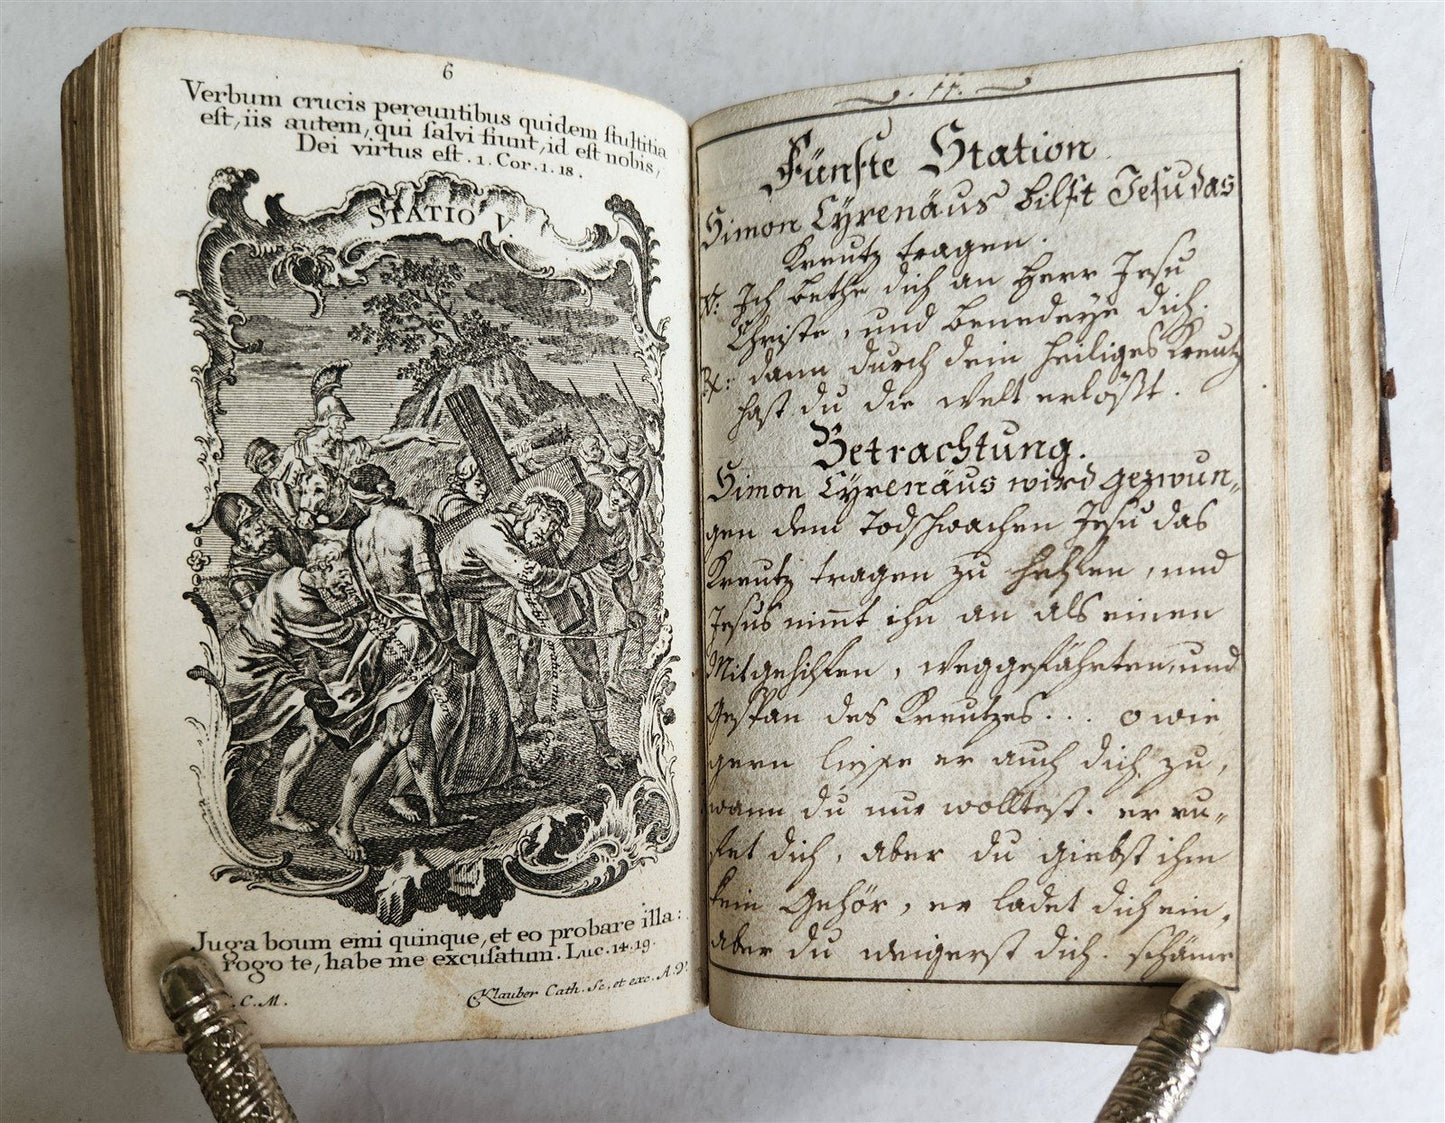 6
Verbum crucis pereuntibus quidem ſtultitia
eſt, iis autem, qui ſalvi fiunt, id eſt nobis,
Dei virtus eſt. 1. Cor. 1. 18.
STATIO V.
Juga boum emi quinque, et eo probare illa:
rogo te, habe me excuſatum. Luc. 14. 19.
C. M.
Klauber Cath. Sc. et exc. A. V.
Fünfte Station
Simon Cyrenäus hilft Jesu das
Kreutz tragen.
V: Ich bethe dich an Herr Jesu
Christe, und benedeye dich.
R: dann durch dein heiliges Kreutz
hast du die Welt erlößt.
Betrachtung.
Simon Cyrenäus wird gezwun„
gen dem Todschwachen Jesu das
Kreutz tragen zu helfen, und
Jesus nim̅t ihn an als einen
Mitgehilfen, Weggefährten, und
Gespan des Kreutzes... o wie
gern liesse er auch dich zu,
wann du nur wolltest. er ru„
fet dich, aber du giebst ihm
kein Gehör, er ladet dich ein,
aber du weigerst dich. schäme